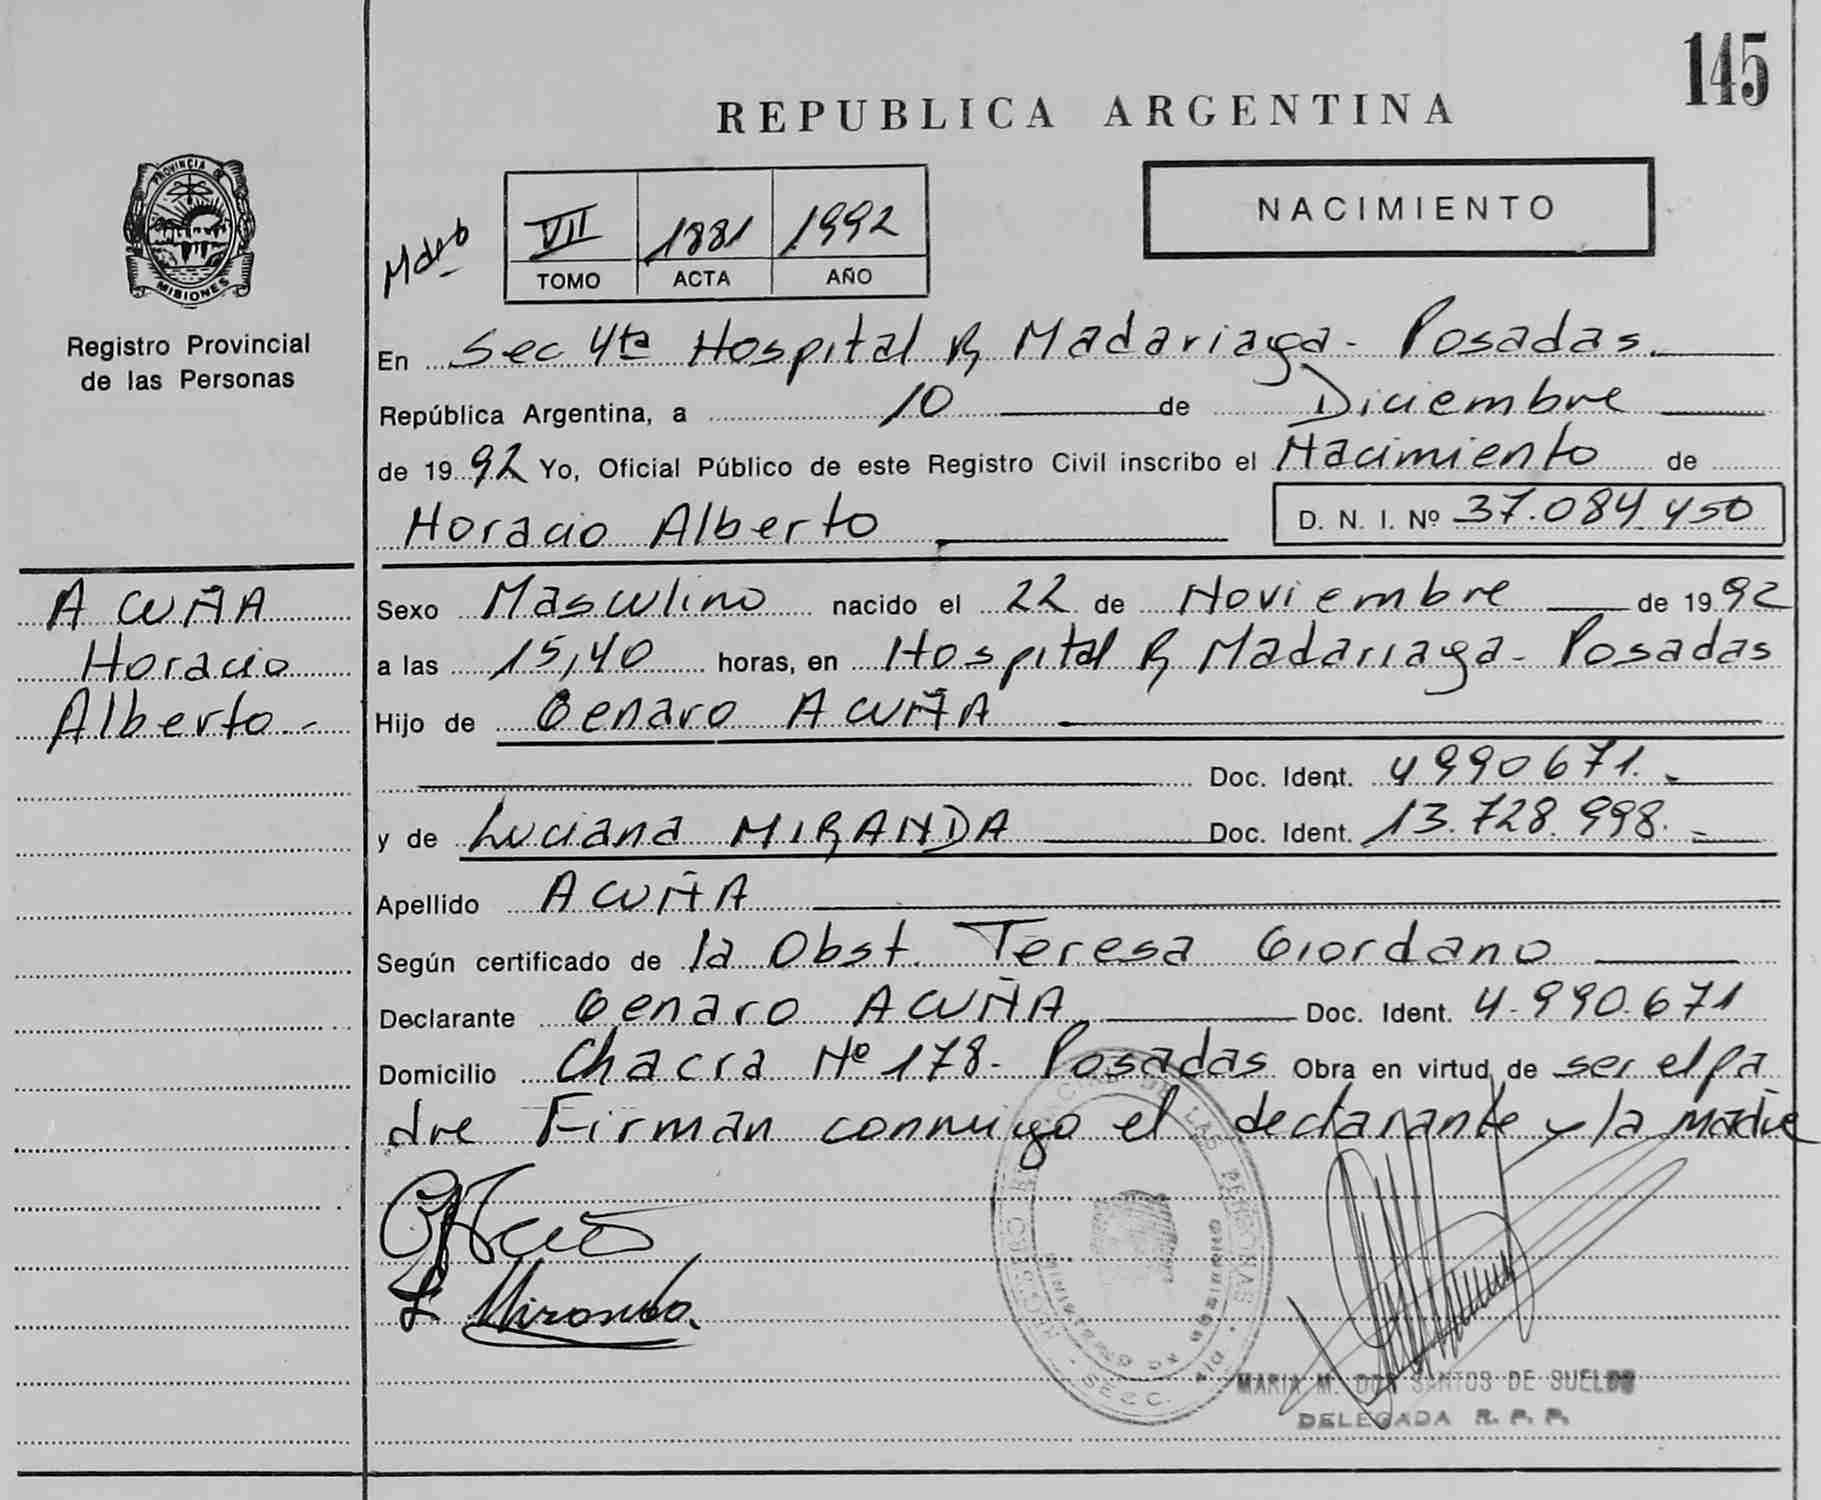 145
REPUBLICA ARGENTINA
PROVINCIA DE
MISIONES
Registro Provincial
de las Personas
VII 1881 1992
TOMO ACTA AÑO
NACIMIENTO
En Sec 4ta Hospital R. Madariaga - Posadas.
República Argentina, a 10 de Diciembre
de 1992 Yo, Oficial Público de este Registro Civil inscribo el Nacimiento de
Horacio Alberto D. N. I. Nº 37.084.450
ACUÑA
Horacio
Alberto.-
Sexo Masculino nacido el 22 de Noviembre de 1992
a las 15,40 horas, en Hospital R. Madariaga - Posadas
Hijo de Genaro ACUÑA
Doc. Ident. 4990671.-
y de Luciana MIRANDA Doc. Ident. 13.728.998.-
Apellido ACUÑA
Según certificado de la Obst. Teresa Giordano
Declarante Genaro ACUÑA Doc. Ident. 4.990.671
Domicilio Chacra Nº 178 - Posadas Obra en virtud de ser el pa
dre Firman conmigo el declarante y la madre
L Miranda.
DE LAS PERSONAS
MINISTERIO DE GOBIERNO
SECC. 4ta
MARIA M. DOS SANTOS DE SUELDO
DELEGADA R. P. P.